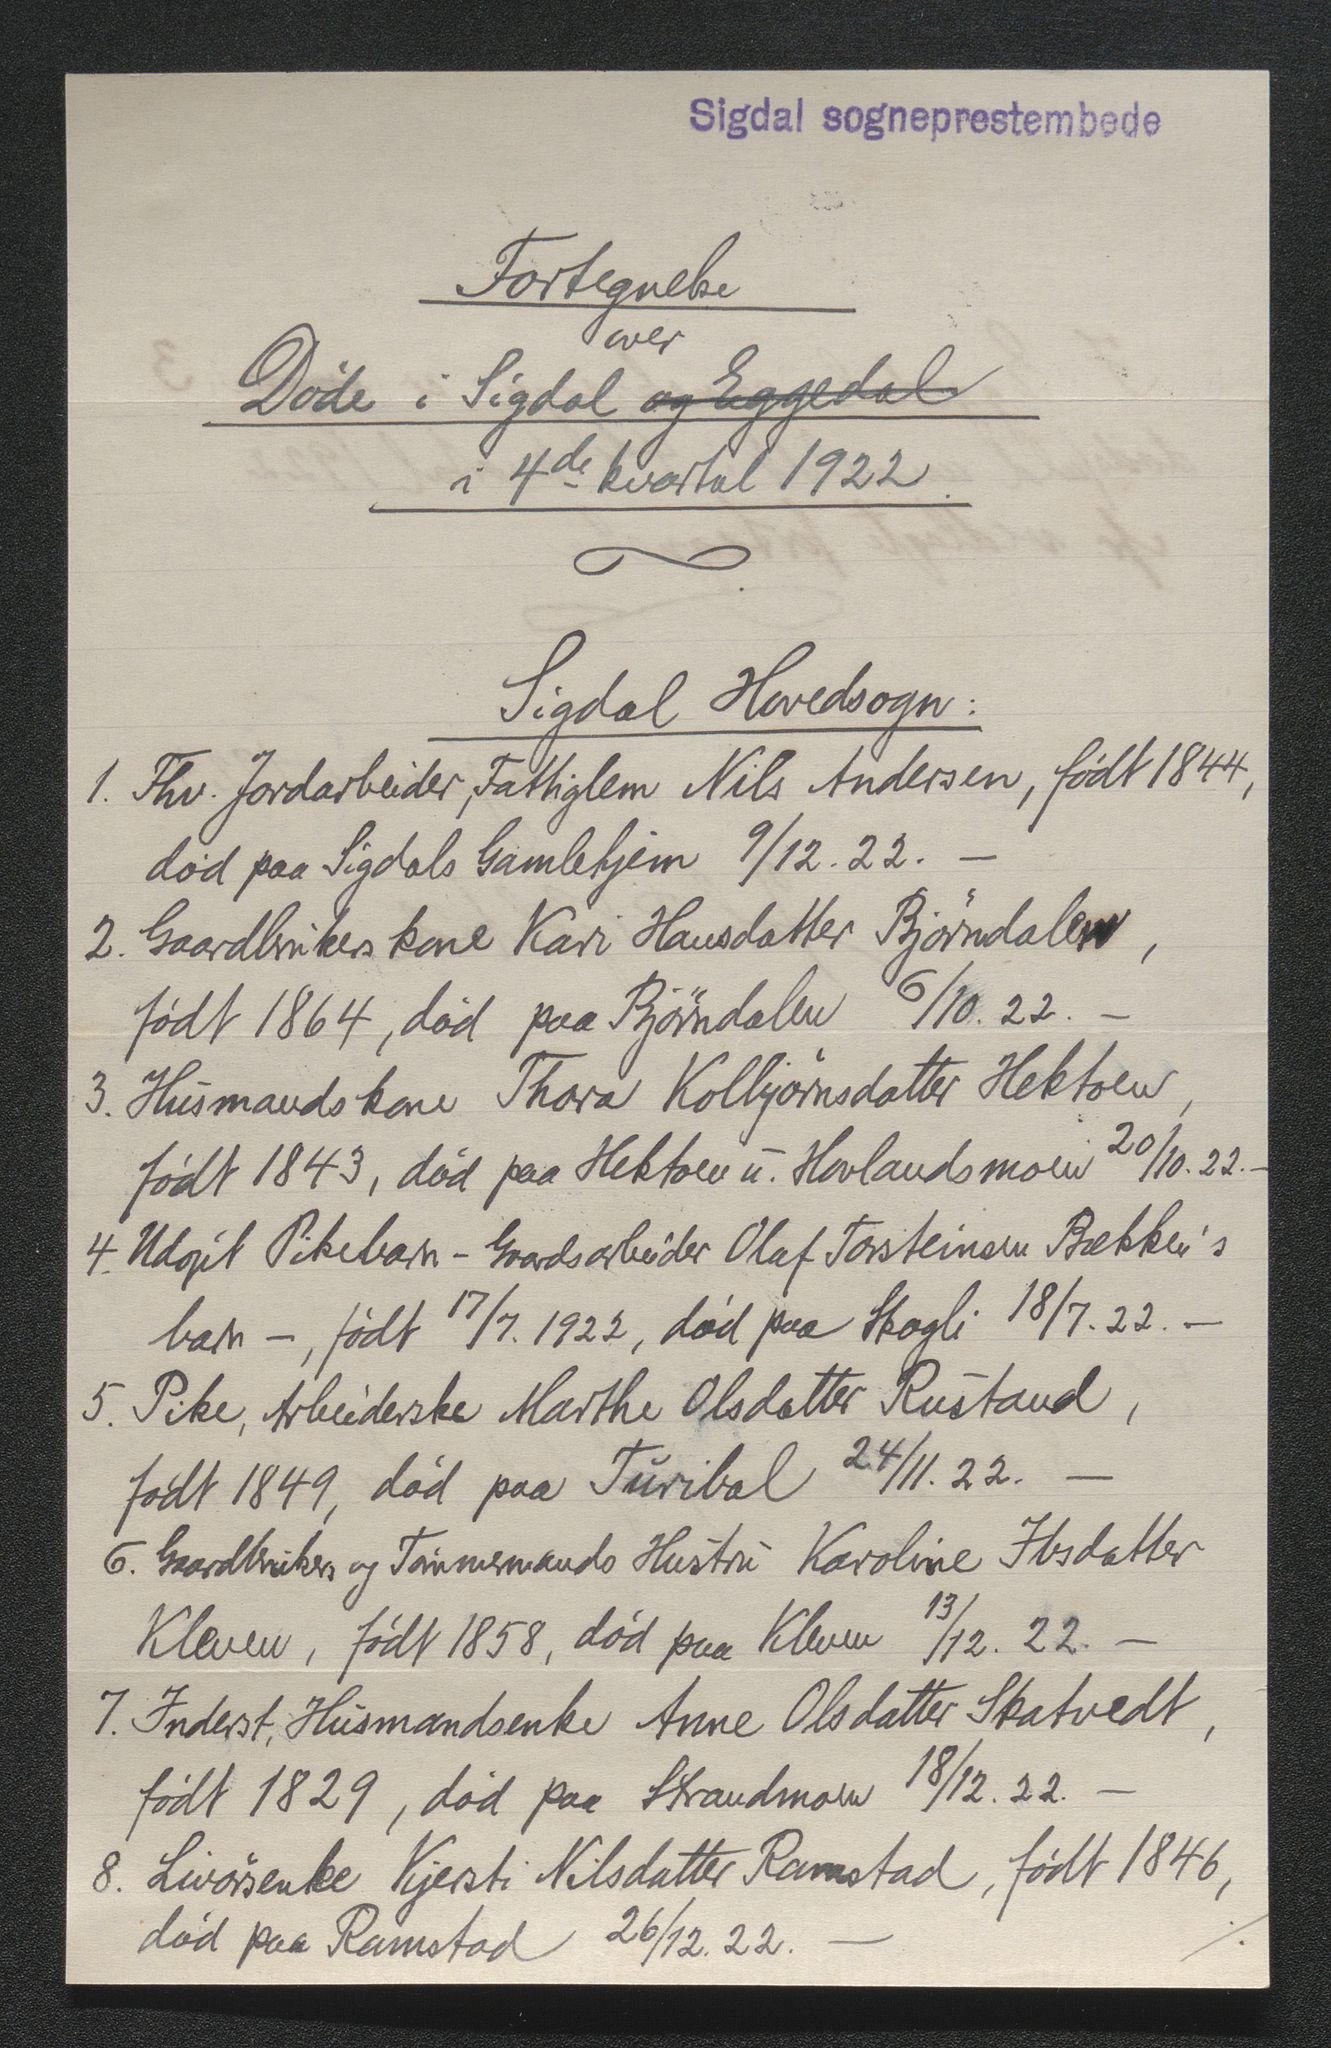 Sigdal sogneprestembede
Fortegnelse
over
Döde i Sigdal og Eggedal
i 4de kvartal 1922.
Sigdal Hovedsogn:
1. Fhv. Jordarbeider, Fattiglem Nils Andersen, födt 1844,
död paa Sigdals Gamlehjem 9/12. 22. —
2. Gaardbrukers kone Kari Hansdatter Björndalen,
födt 1864, död paa Björndalen 6/10. 22. —
3. Husmandskone Thora Kolbjörnsdatter Hektoen,
födt 1843, död paa Hektoen u. Hovlandsmoen 20/10. 22. —
4. Udöpt Pikebarn - Gaardsarbeider Olaf Torsteinsen Bækken's
barn —, födt 17/7. 1922, död paa Skogli 18/7. 22. —
5. Pike, Arbeiderske Marthe Olsdatter Rustand,
födt 1849, död paa Turibal 24/11. 22. —
6. Gaardbrukers og Tömmermands Hustru Karoline Ibsdatter
Kleven, födt 1858, död paa Kleven 13/12. 22. —
7. Inderst, Husmandsenke Anne Olsdatter Skatvedt,
födt 1829, död paa Strandmoen 18/12. 22. —
8. Livörsenke Kjersti Nilsdatter Ramstad, födt 1846,
död paa Ramstad 26/12. 22. —
./.